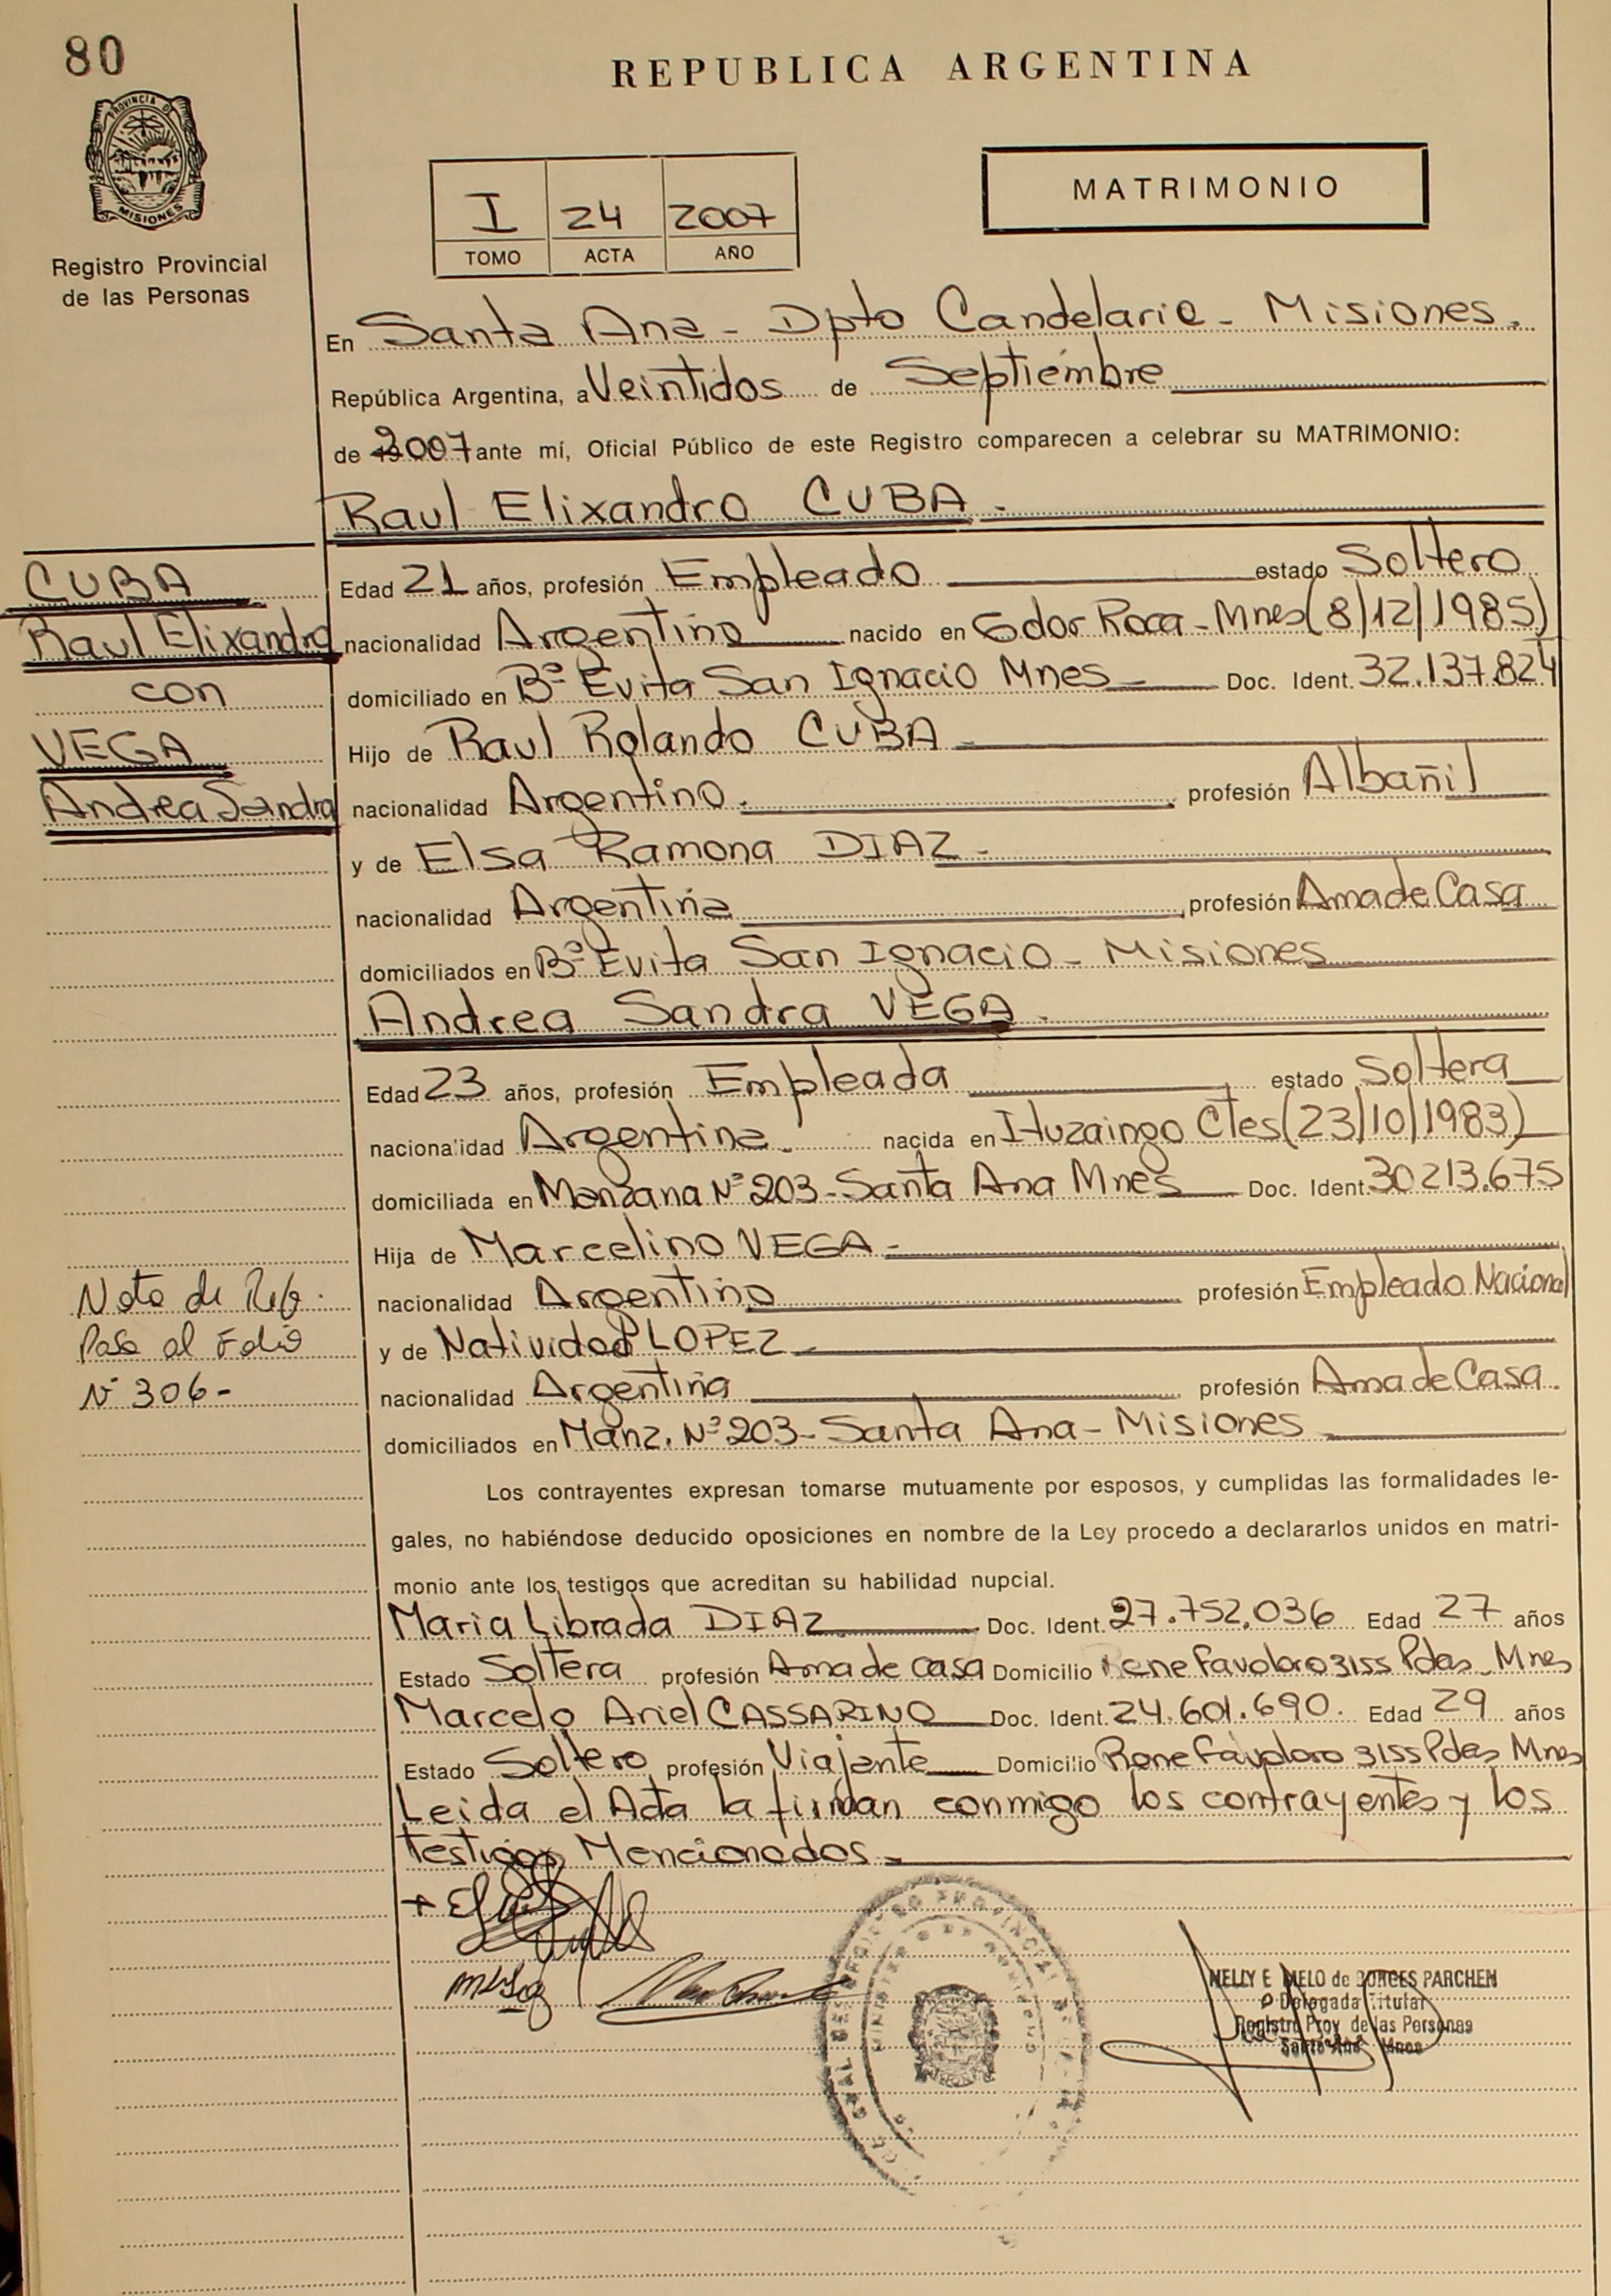 80
REPUBLICA ARGENTINA
PROVINCIA DE
MISIONES
Registro Provincial
de las Personas
MATRIMONIO
I 24 2007
TOMO ACTA AÑO
En Santa Ana - Dpto Candelaria - Misiones.
República Argentina, a Veintidos de Septiembre
de 2007 ante mí, Oficial Público de este Registro comparecen a celebrar su MATRIMONIO:
Raul Elixandro CUBA.
CUBA
Raul Elixandro
con
VEGA
Andrea Sandra
Edad 21 años, profesión Empleado estado Soltero
nacionalidad Argentino nacido en Gdor Roca - Mnes (8/12/1985)
domiciliado en Bº Evita San Ignacio Mnes Doc. Ident. 32.137.824
Hijo de Raul Rolando CUBA
nacionalidad Argentino. profesión Albañil
y de Elsa Ramona DIAZ
nacionalidad Argentina profesión Ama de Casa
domiciliados en Bº Evita San Ignacio - Misiones
Andrea Sandra VEGA.
Edad 23 años, profesión Empleada estado Soltera
nacionalidad Argentina. nacida en Ituzaingo Ctes (23/10/1983)
domiciliada en Manzana Nº 203 - Santa Ana Mnes Doc. Ident. 30213.675
Hija de Marcelino VEGA
nacionalidad Argentino profesión Empleado Nacional
y de Natividad LOPEZ
nacionalidad Argentina profesión Ama de Casa
domiciliados en Manz. Nº 203 - Santa Ana - Misiones
Nota de Ref.
Pasa al Folio
Nº 306 -
Los contrayentes expresan tomarse mutuamente por esposos, y cumplidas las formalidades le-
gales, no habiéndose deducido oposiciones en nombre de la Ley procedo a declararlos unidos en matri-
monio ante los testigos que acreditan su habilidad nupcial.
Maria Librada DIAZ Doc. Ident. 27.752.036 Edad 27 años
Estado Soltera profesión Ama de casa Domicilio Rene Favoloro 3155 Pdas - Mnes
Marcelo Ariel CASSARINO Doc. Ident. 24.601.690. Edad 29 años
Estado Soltero profesión Viajante Domicilio Rene Favoloro 3155 Pdas Mnes
Leida el Acta la firman conmigo los contrayentes y los
testigos Mencionados
NELLY E MELO de BORGES PARCHEN
Delegada Titular
Registro Prov. de las Personas
Santa Ana Mnes